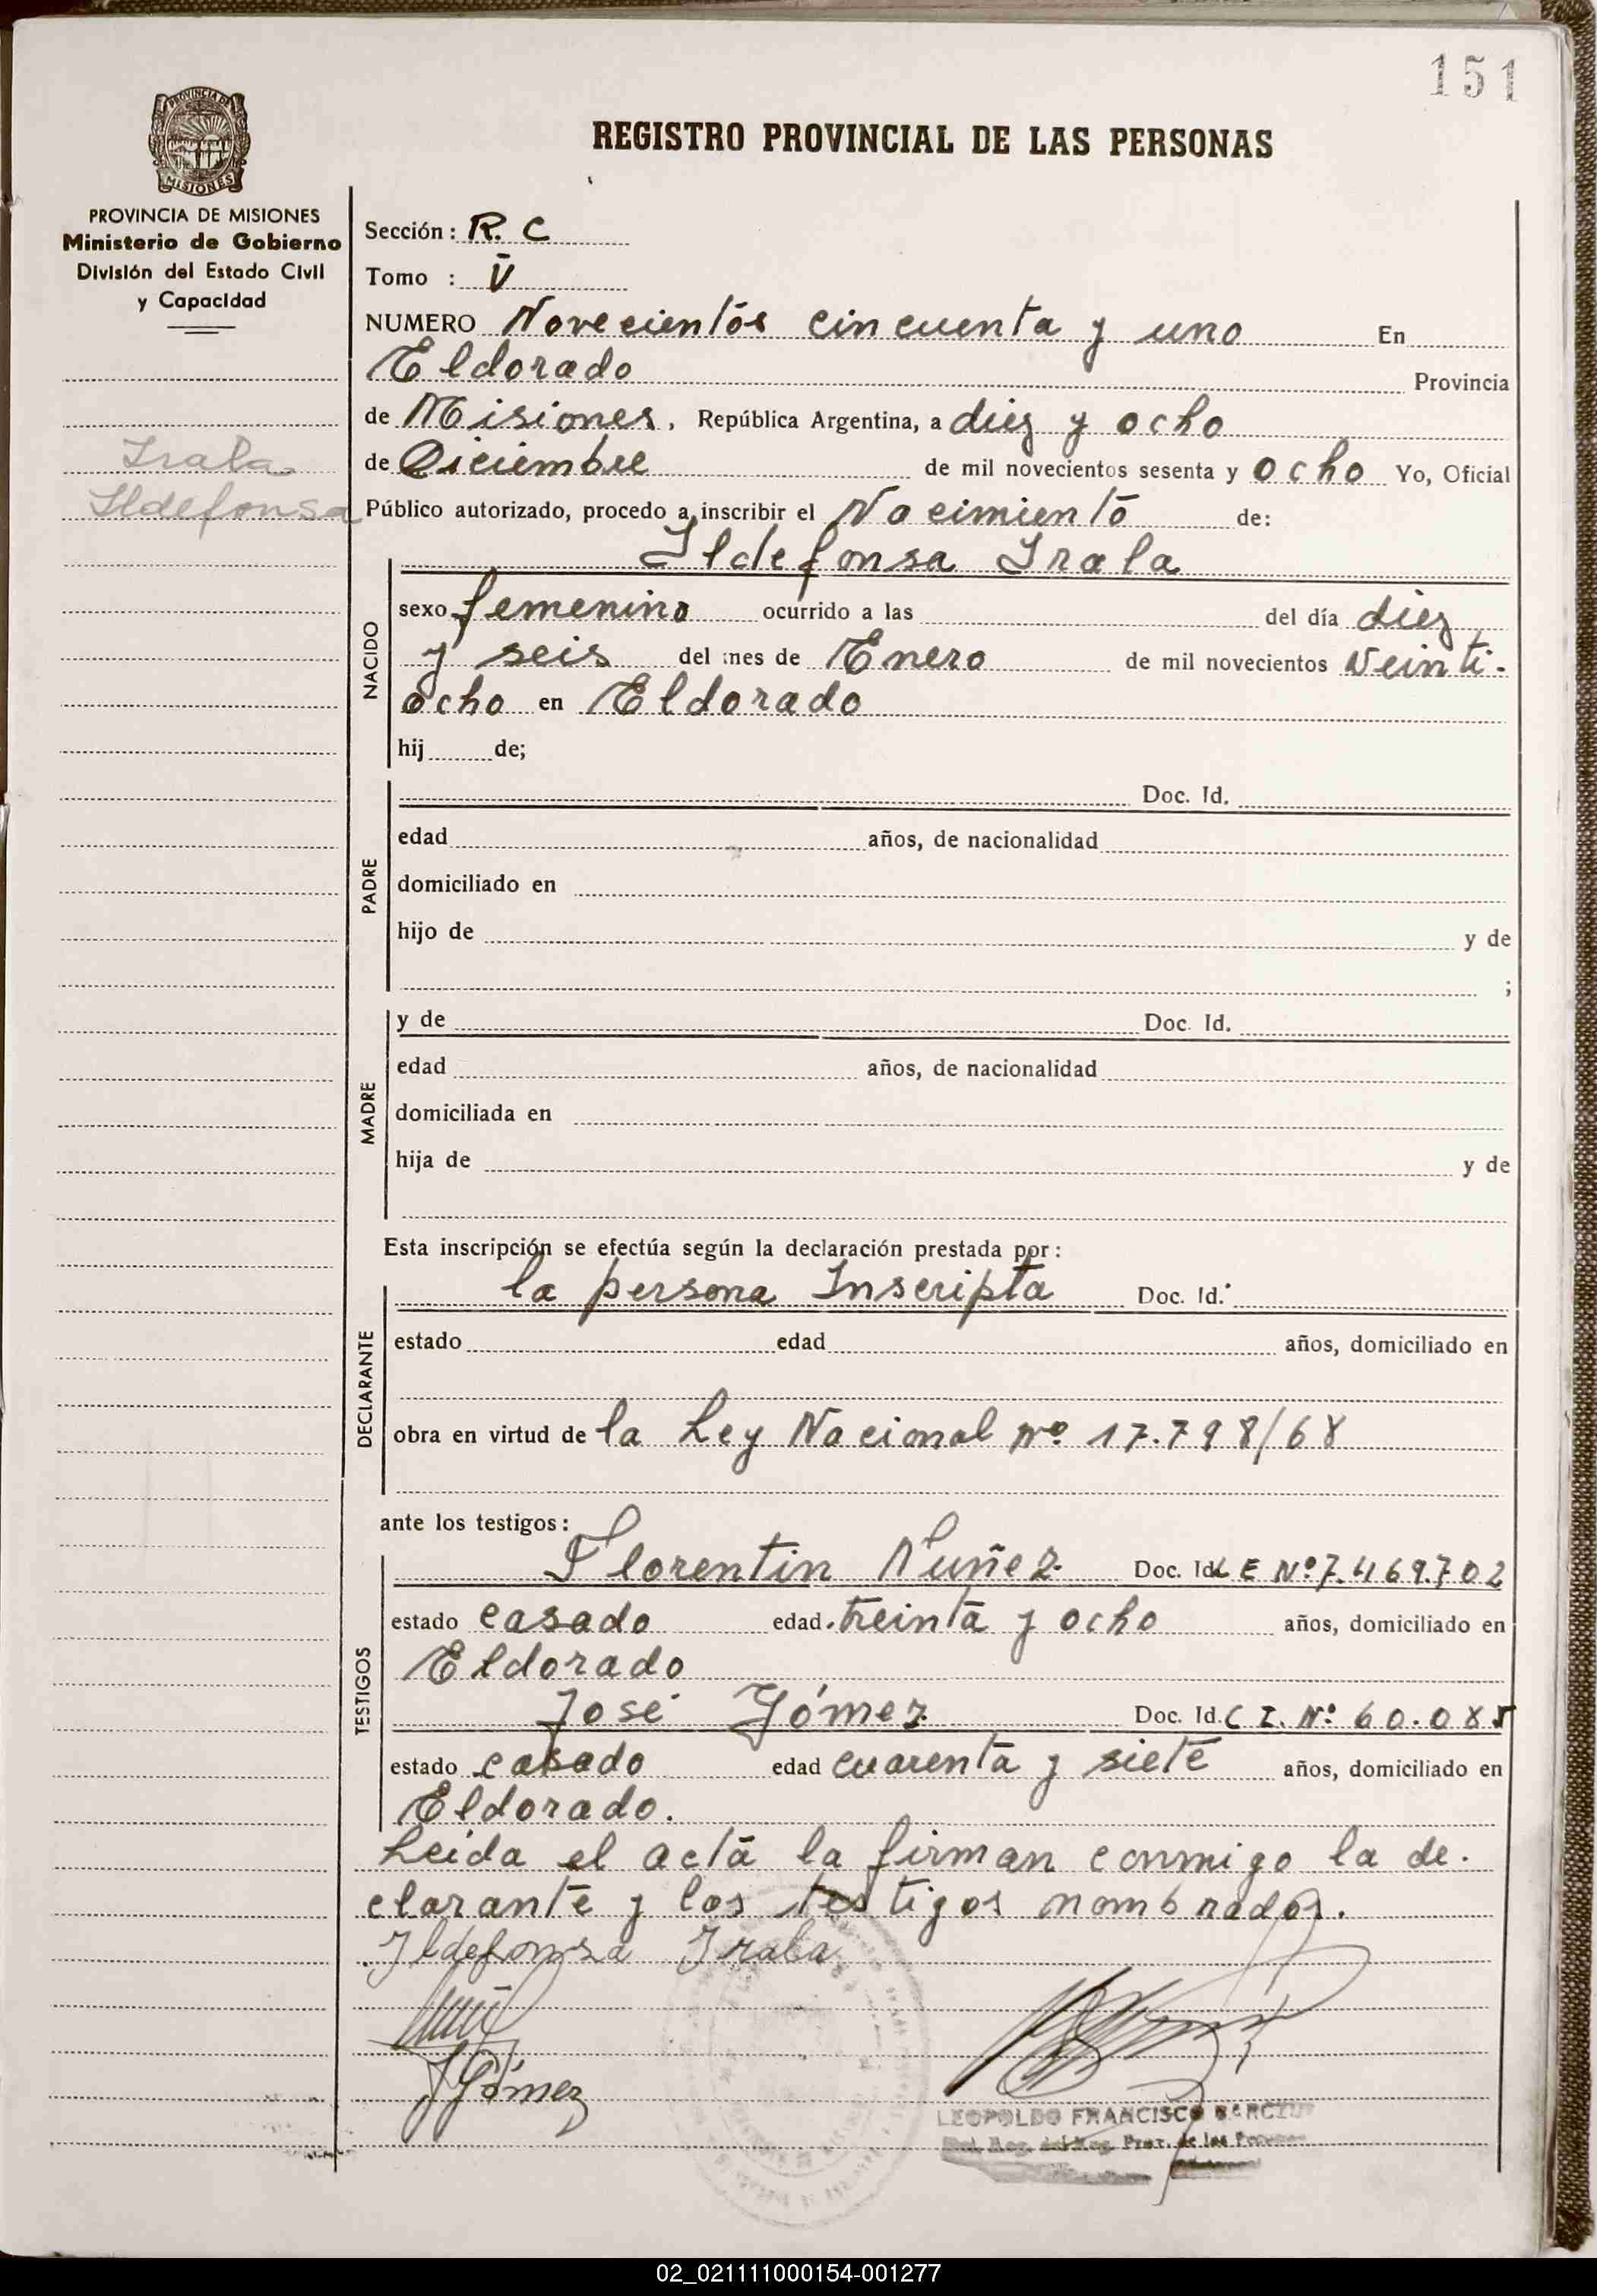 151
PROVINCIA DE
MISIONES
REGISTRO PROVINCIAL DE LAS PERSONAS
PROVINCIA DE MISIONES
Ministerio de Gobierno
División del Estado Civil
y Capacidad
Irala
Ildefonsa
Sección: R. C
Tomo : V
NUMERO Novecientos cincuenta y uno En
Eldorado Provincia
de Misiones, República Argentina, a diez y ocho
de Diciembre de mil novecientos sesenta y ocho Yo, Oficial
Público autorizado, procedo a inscribir el Nacimiento de:
Ildefonsa Irala
NACIDO
sexo femenino ocurrido a las del día diez
y seis del mes de Enero de mil novecientos veinti-
ocho en Eldorado
hij de;
PADRE
Doc. Id.
edad años, de nacionalidad
domiciliado en
hijo de y de
;
MADRE
y de Doc. Id.
edad años, de nacionalidad
domiciliada en
hija de y de
Esta inscripción se efectúa según la declaración prestada por:
DECLARANTE
la persona Inscripta Doc. Id.
estado edad años, domiciliado en
obra en virtud de la Ley Nacional nº 17.798/68
ante los testigos:
TESTIGOS
Florentin Nuñez Doc. Id. L E Nº 7.469.702
estado casado edad treinta y ocho años, domiciliado en
Eldorado
José Gómez Doc. Id. C I. Nº 60.085
estado casado edad cuarenta y siete años, domiciliado en
Eldorado.
Leida el acta la firman conmigo la de-
clarante y los testigos nombrados.
Ildefonsa Irala
J Gómez
LEOPOLDO FRANCISCO
Reg. Prov. de las Personas
02_021111000154-001277